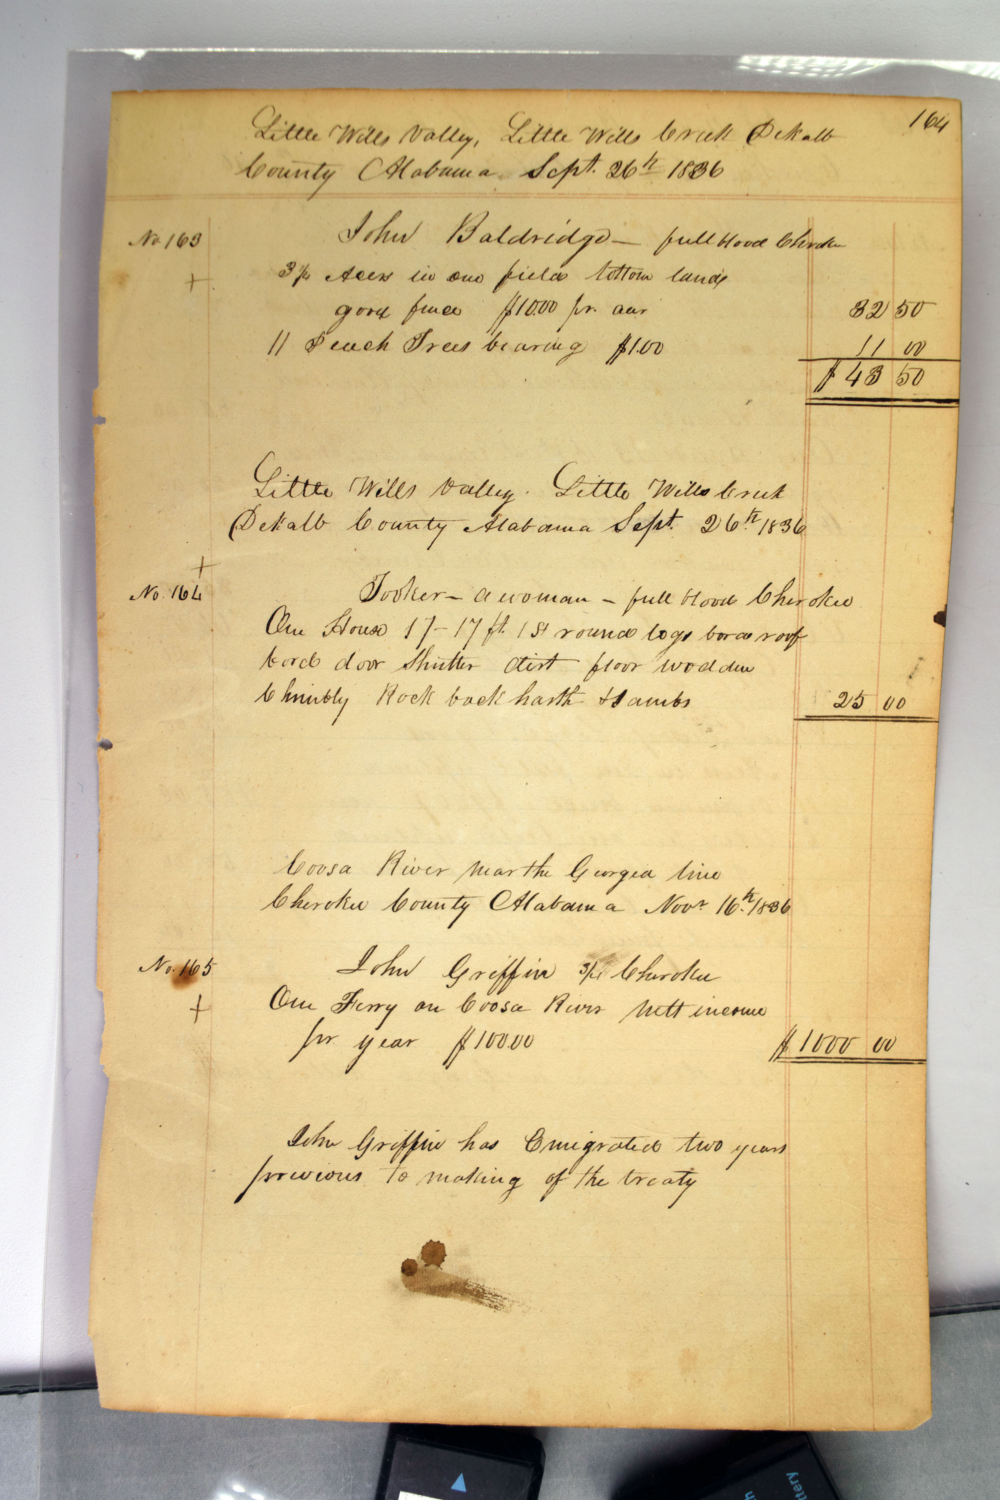 164
Little Wills Valley, Little Wills Creek DeKalb
County Alabama Sept. 26th 1836
No 163
John Baldridge — full blood Cherokee
+
3¼ Acers in one field bottom lands
good fence $10.00 pr. acer 32 50
11 Peach Trees bearing $1.00 11 00
$ 43 50
Little Wills Valley. Little Wills Creek
DeKalb County Alabama Sept. 26th 1836
+
No. 164 Tooker – a woman – full blood Cherokee
One House 17–17 ft. 1 St round logs bord roof
bord door Shutter dirt floor wodden
Chimbly Rock back harth & Jambs 25 00
Coosa River near the Georgea line
Cherokee County Alabama Novr 16th 1836
No. 165 John Griffin Cherokee
+
One Ferry on Coosa River nett income
pr year $100.00 $ 1000 00
John Griffin has Emigrated two years
previous to making of the treaty
ttery